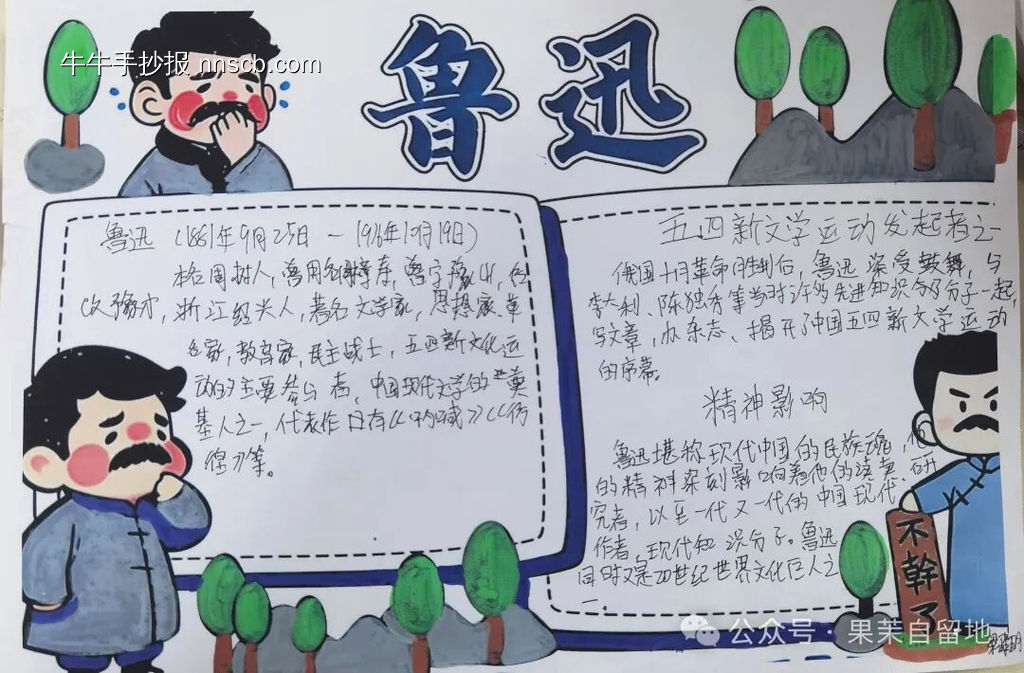 牛牛手抄报 nnscb.com
鲁迅
鲁迅（1881年9月25日－1936年10月19日）
本名周树人，曾用名周樟寿，曾字豫山，后
改豫才，浙江绍兴人，著名文学家，思想家、革
命家，教育家，民主战士，五四新文化运
动的主要参与者，中国现代文学的奠
基人之一，代表作品有《呐喊》《彷
徨》等。
五四新文学运动发起者之一
俄国十月革命胜利后，鲁迅深受鼓舞，与
李大利、陈独秀等当时许多先进知识分子一起，
写文章，办杂志、揭开了中国五四新文学运动
的序幕。
精神影响
鲁迅堪称现代中国的民族魂，他
的精神深刻影响着他的读者、研
究者，以至一代又一代的中国现代、
作者，现代知识分子。鲁迅
同时又是20世纪世界文化巨人之
一.
不幹了
公众号·果茉自留地